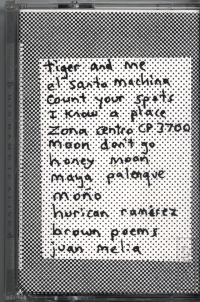 tiger and me
el santo machina
Count your spots
I know a place
Zona centro CP 3700
Moon don't go
honey moon
maya palenque
moño
hurican ramirez
brown poems
juan melia